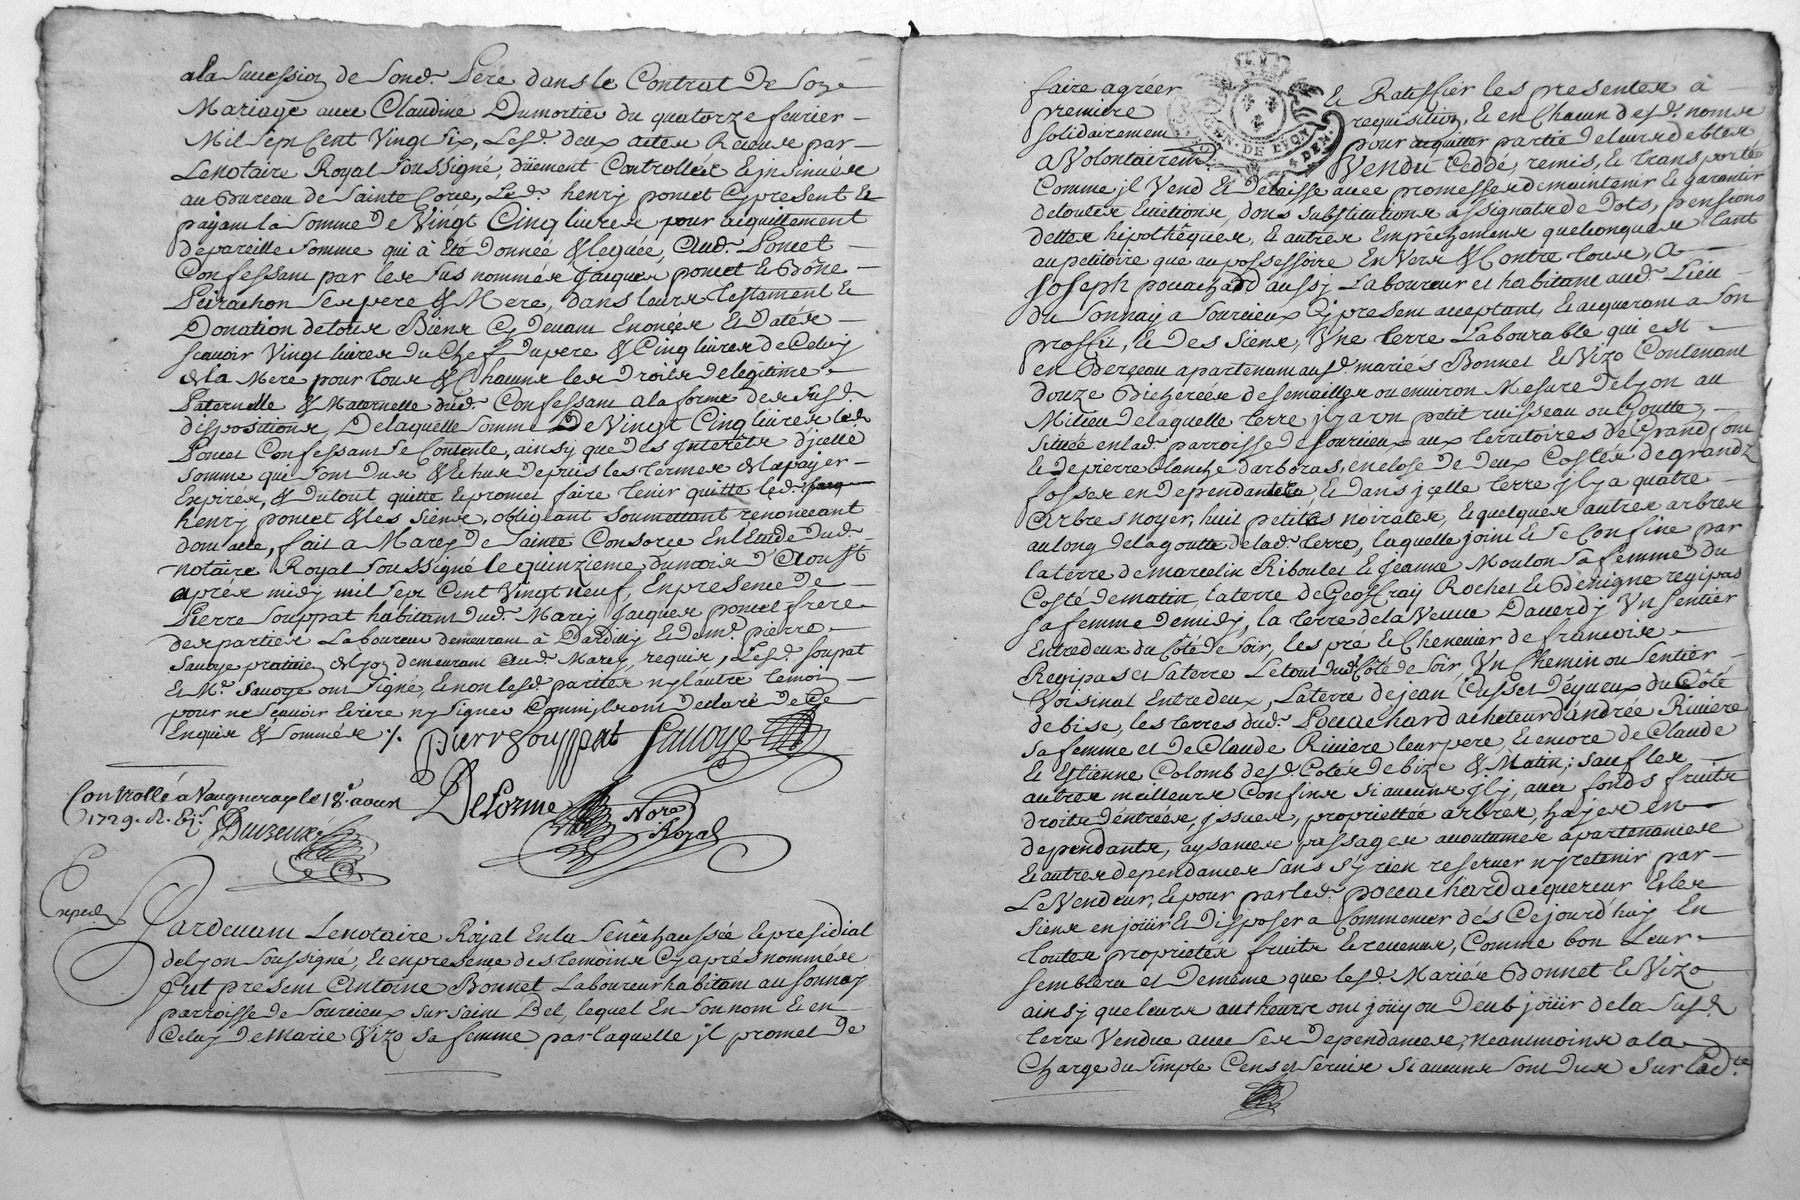 a la succession de sond. Pere dans le Contrat de son
Mariage avec Claudine Dumortier du quatorze fevrier
Mil Sept Cent Vingt Six, Lesd. deux actes Receus par
Le notaire Royal soussigné, düement Controllés & jnsinués
au Bureau de Sainte Colve, Led. henry poncet Cy present &
payant la somme De Vingt Cinq livres pour acquittement
de pareille somme qui à Eté Donnée & leguée, Aud. Poncet
Confessant par les sus nommés Jacques poncet & Bône
Peirachon Ses pere & Mere, dans leurs testament &
Donation de tous Biens Cy Devant Enoncés & Datés
scavoir Vingt livres du Chef Dupere & Cinq livres de Celuy
de la Mere pour tous & Chacuns les Droits de legitime
Paternelle & Maternelle dud. Confessant a la forme des susd.
dispositions, De laquelle somme De Vingt Cinq livres led.
Poncet Confessant Se Contente, ainsy que des Interêts d'jcelle
somme qui sont dus & Echus Depuis les termes de la payer
Expirés, & du tout quitte & promet faire tenir quitte led.
henry poncet & les siens, obligeant soumettant renonceant
dont acte, fait a Marcy De Sainte Consorce En l'Etude dud.
notaire Royal soussigné le quinzieme du mois d'Aoust
aprés midy mil sept Cent Vingt neuf, En presence de
Pierre Souppat habitant dud. Marcy Jacques poncet frere
des parties Laboureur demeurant à Dardilly & de me. pierre
Savoye praticien de demeurant aud. Marcy, requis, Lesd. soupat
& Me. Savoye ont signé, & non lesd. parties ny l'autre temoin
pour ne Scavoir Ecrire ny signer Comm'ils ont Declaré De Ce
Enquis & Sommés ./.
pierre souppat Savoye
Delorme Nore. Royal
Controllé à Vaugneray le 18e. aoust
1729. R.
Exped.
Pardevant Le notaire Royal En la Senêchaussée & presidial
de Lyon soussigné, & en presence des temoins Cy aprés nommés
fut present Antoine Bonnet Laboureur habitant au sonnay
parroisse de sourcieux sur saint Bel, lequel En son nom & en
Celuy De Marie Vizo Sa femme par laquelle jl promet De
faire agréer & Ratiffier les presentes à
premiere requisition, & en Chacun desd. noms
solidairement pour acquitter partie de leurs debtes
a Volontairemt. Vendu Ceddé, remis, & transporté
GEN. DE LYON 4 DEN.
Comme jl Vend & Delaisse avec promesse de maintenir & garantir
de toutes Evictions, dons substitutions assignats de Dots, pensions
dettes hipothêques, & autres Empêchemens quelconques tant
au petitoire que au possessoire Envers & Contre tous, A
Joseph pouachard aussy Laboureur et habitant aud. Lieu
du Sonnay a Sourcieux Cy present acceptant, & acquerant a son
proffit, & des siens, Une terre Labourable qui est
en Berceau apartenant ausd. mariés Bonnet & Vizo Contenant
douze Bicherées de semailles ou environ Mesure de lyon au
Milieu de laquelle terre jl y a un petit ruisseau ou Goutte,
située en lad. parroisse de sourcieux aux territoires de Grand font
& de pierre blanche d'arboras, enclose de deux Costés de grands
fosses en dependants & Dans jcelle terre jl y a quatre
Arbres noyer, huit petites noirates, & quelques autres arbres
au long de la goutte de lad. terre, laquelle joint & se Confine par
la terre de marcelin Riboulet & Jeanne Moulon sa femme du
Costé de matin, la terre de Geoffray Rochet & Benigne regipas
sa femme de midy, la terre de la Veuve Daverdy Un sentier
Entredeux du Côté de soir, les pré & Chenevier de francoise
Regipas et sa terre Le tout dud. Côté de soir, Un Chemin ou Sentier
Voisinal Entredeux, La terre de jean Cusset d'Eyveux du Côté
de bise, les terres dud. Pouachard acheteur d'andrée Riviere
sa femme et de Claude Riviere leur pere, & encore de Claude
& Estienne Colomb desd. Cotés de bize & Matin; sauf les
autres meilleurs Confins si aucuns jl y, avec fonds fruits
droits d'entrées, jssues, proprietté arbres, hayes en
dependants, aysances, passages accoutumés apartenances
& autres dependances sans s'y rien reserver ny retenir par
Le Vendeur, & pour par led. pouachard acquereur & les
siens en joüir & Disposer a Commencer dés Cejourd'huy En
toutes proprietes fruits & revenus, Comme bon Leur
semblera et Demême que lesd. Mariés Bonnet & Vizo
ainsy que leurs autheurs ont jouy ou Deub joüir de la susd.
terre Vendue avec ses Dependances, neantmoins a la
Charge du simple Cens et servis si aucuns sont dus sur lad.te